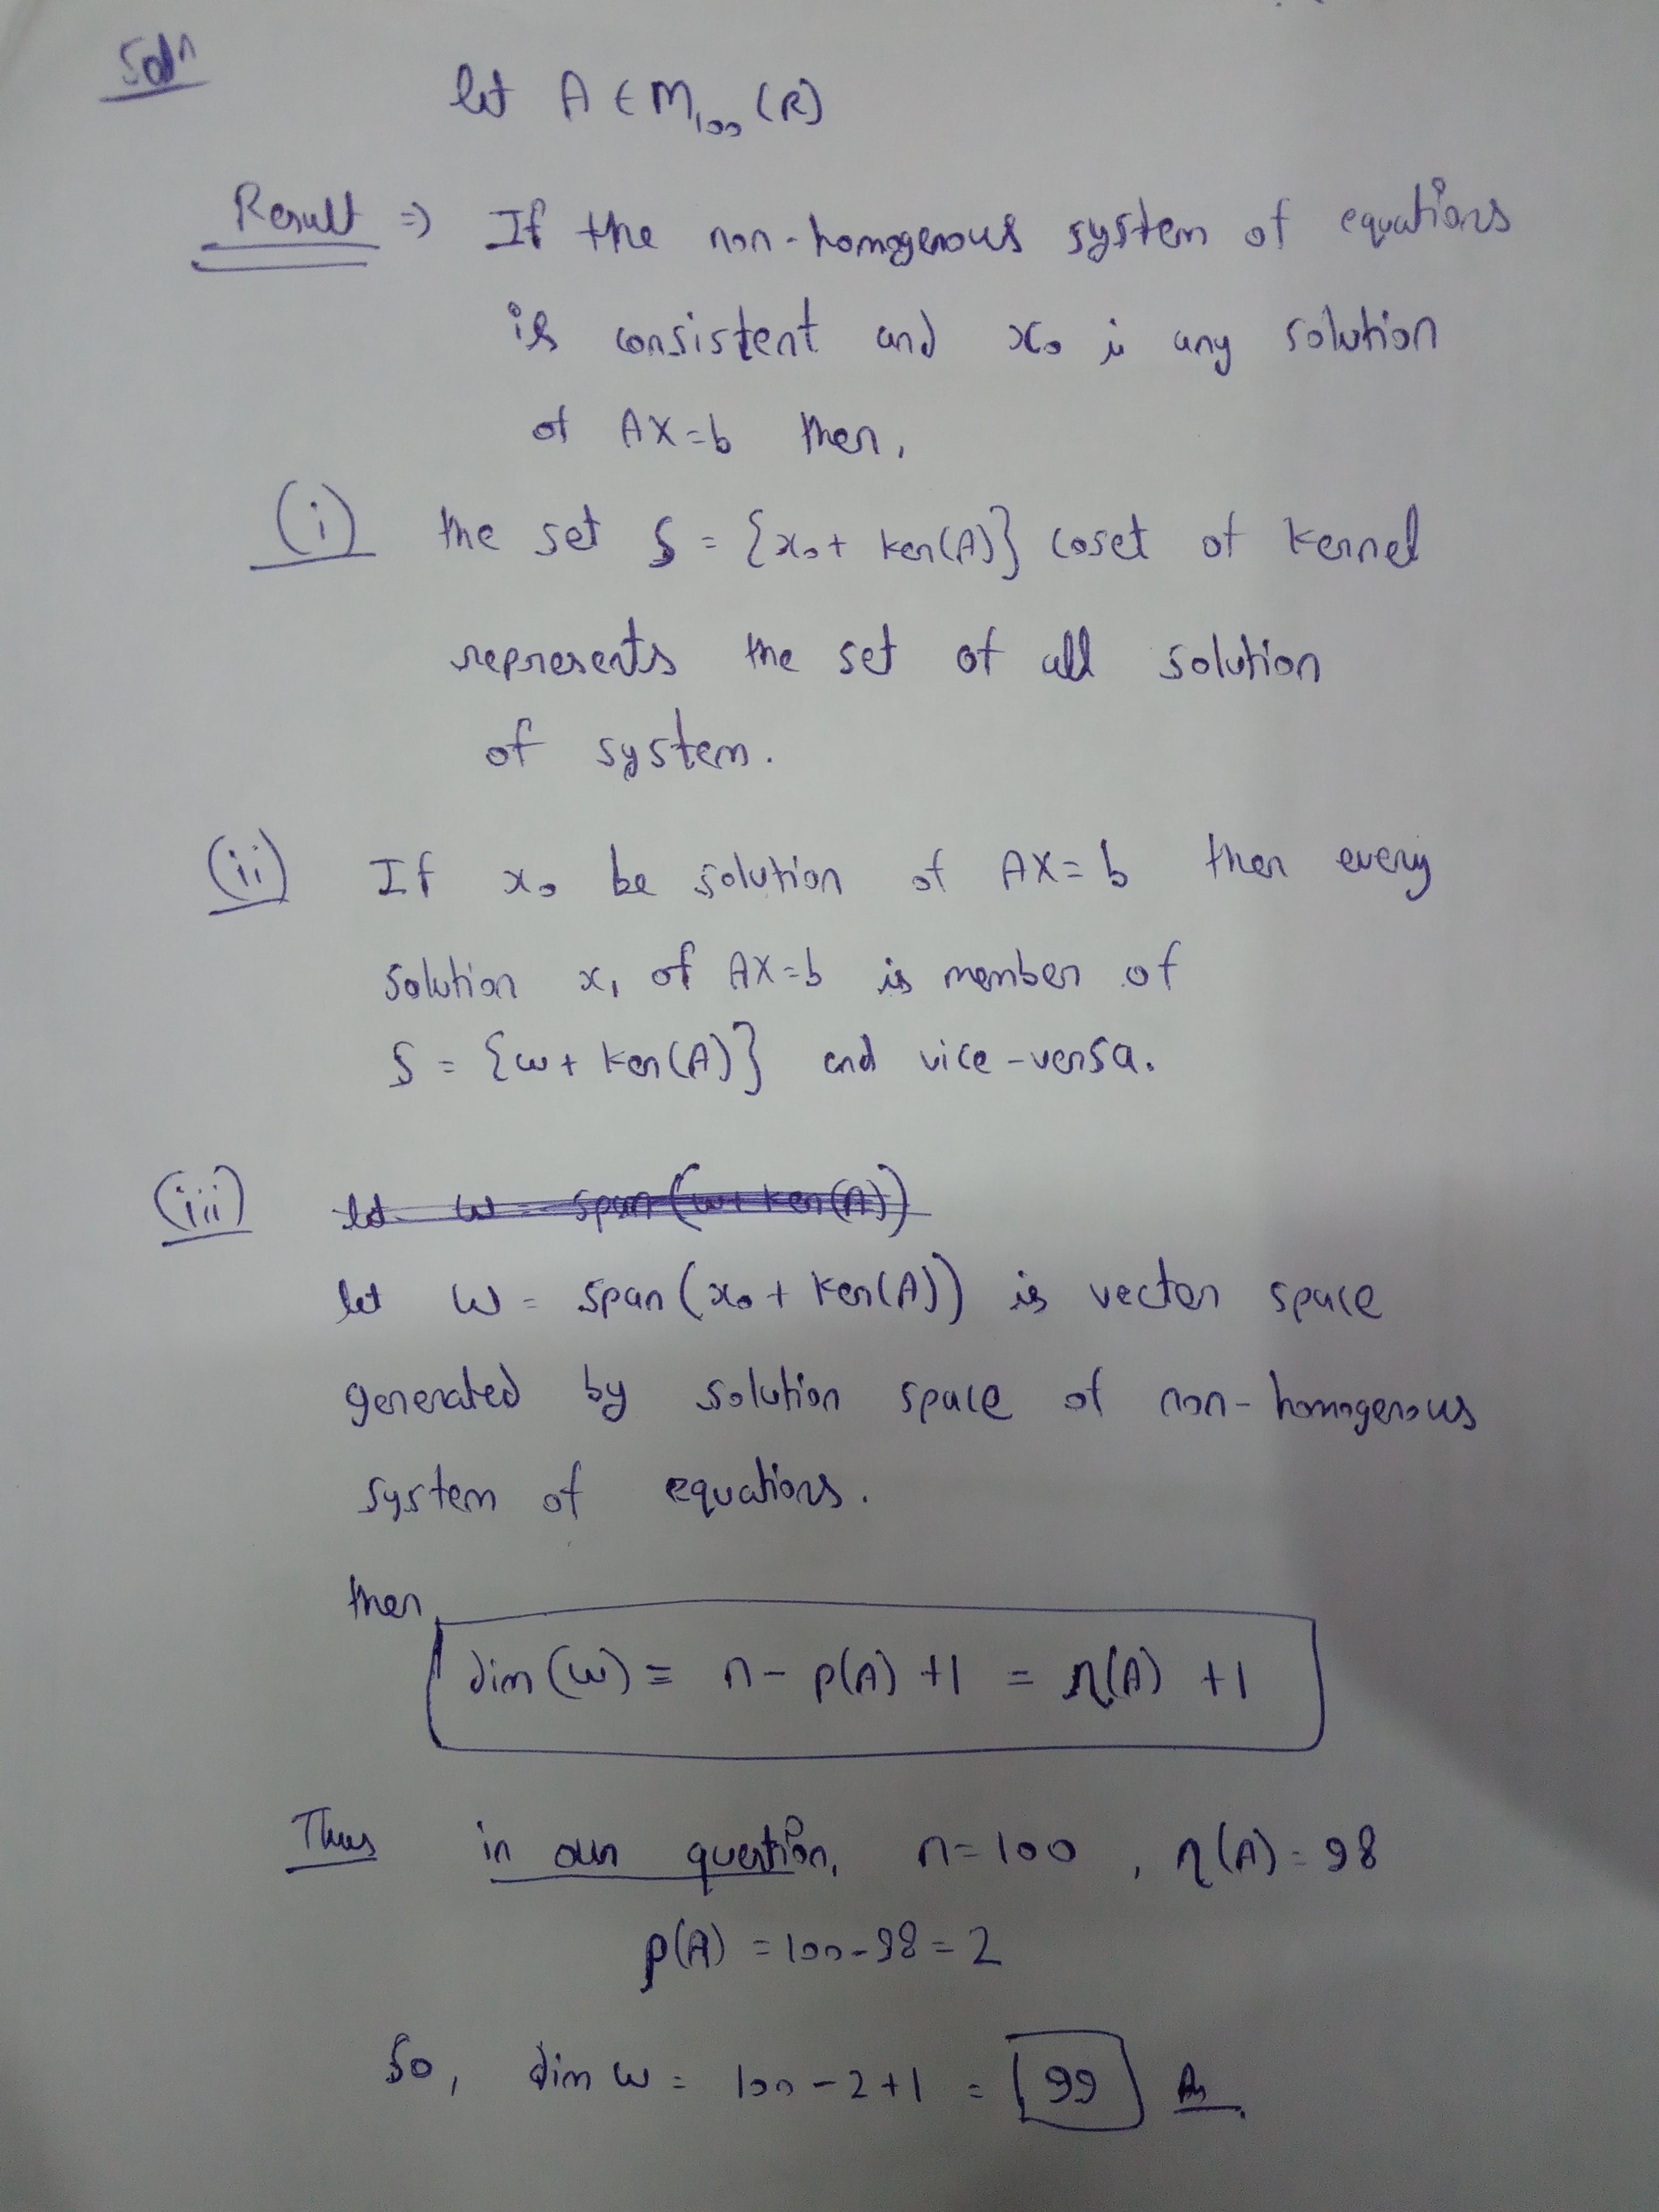 Solⁿ
let A ∈ M₁₀₀ (R)
Result ⇒ If the non-homogenous system of equations
is consistent and x₀ is any solution
of AX=b then,
(i) the set S = {x₀+ ker(A)} coset of kernel
represents the set of all solution
of system.
(ii) If x₀ be solution of AX=b then every
solution x₁ of AX=b is member of
S = {w+ ker(A)} and vice-versa.
(iii) let w = span(w+ ker(A))
let W = span(x₀+ ker(A)) is vector space
generated by solution space of non-homogenous
system of equations.
then,
dim(W) = n - ρ(A) +1 = η(A) +1
Thus in our question, n=100, η(A)=98
ρ(A) =100-98=2
So, dim W = 100-2+1 = 99 Ans.